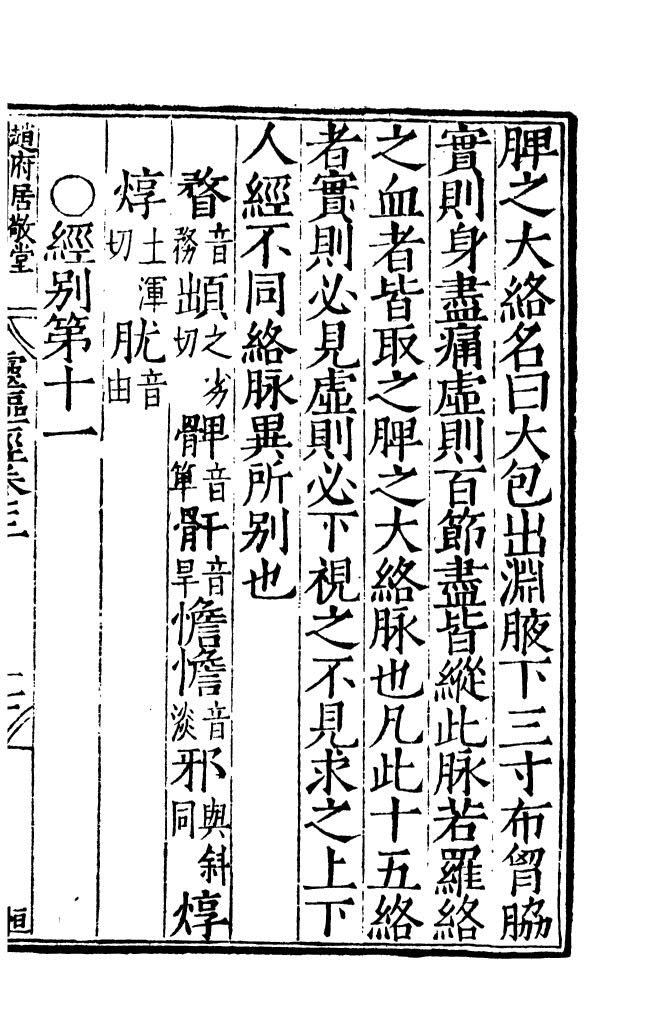 脾之大絡名曰大包出淵腋下三寸布胷脇
實則身盡痛虛則百節盡皆縱此脉若羅絡
之血者皆取之脾之大絡脉也凡此十五絡
者實則必見虛則必下視之不見求之上下
人經不同絡脉異所别也
瞀音務䪼之劣切髀音箄骭音旱憺憺音淡邪與斜同焞
焞土渾切肬音由
○經别第十一
趙府居敬堂
靈樞經卷三
恒